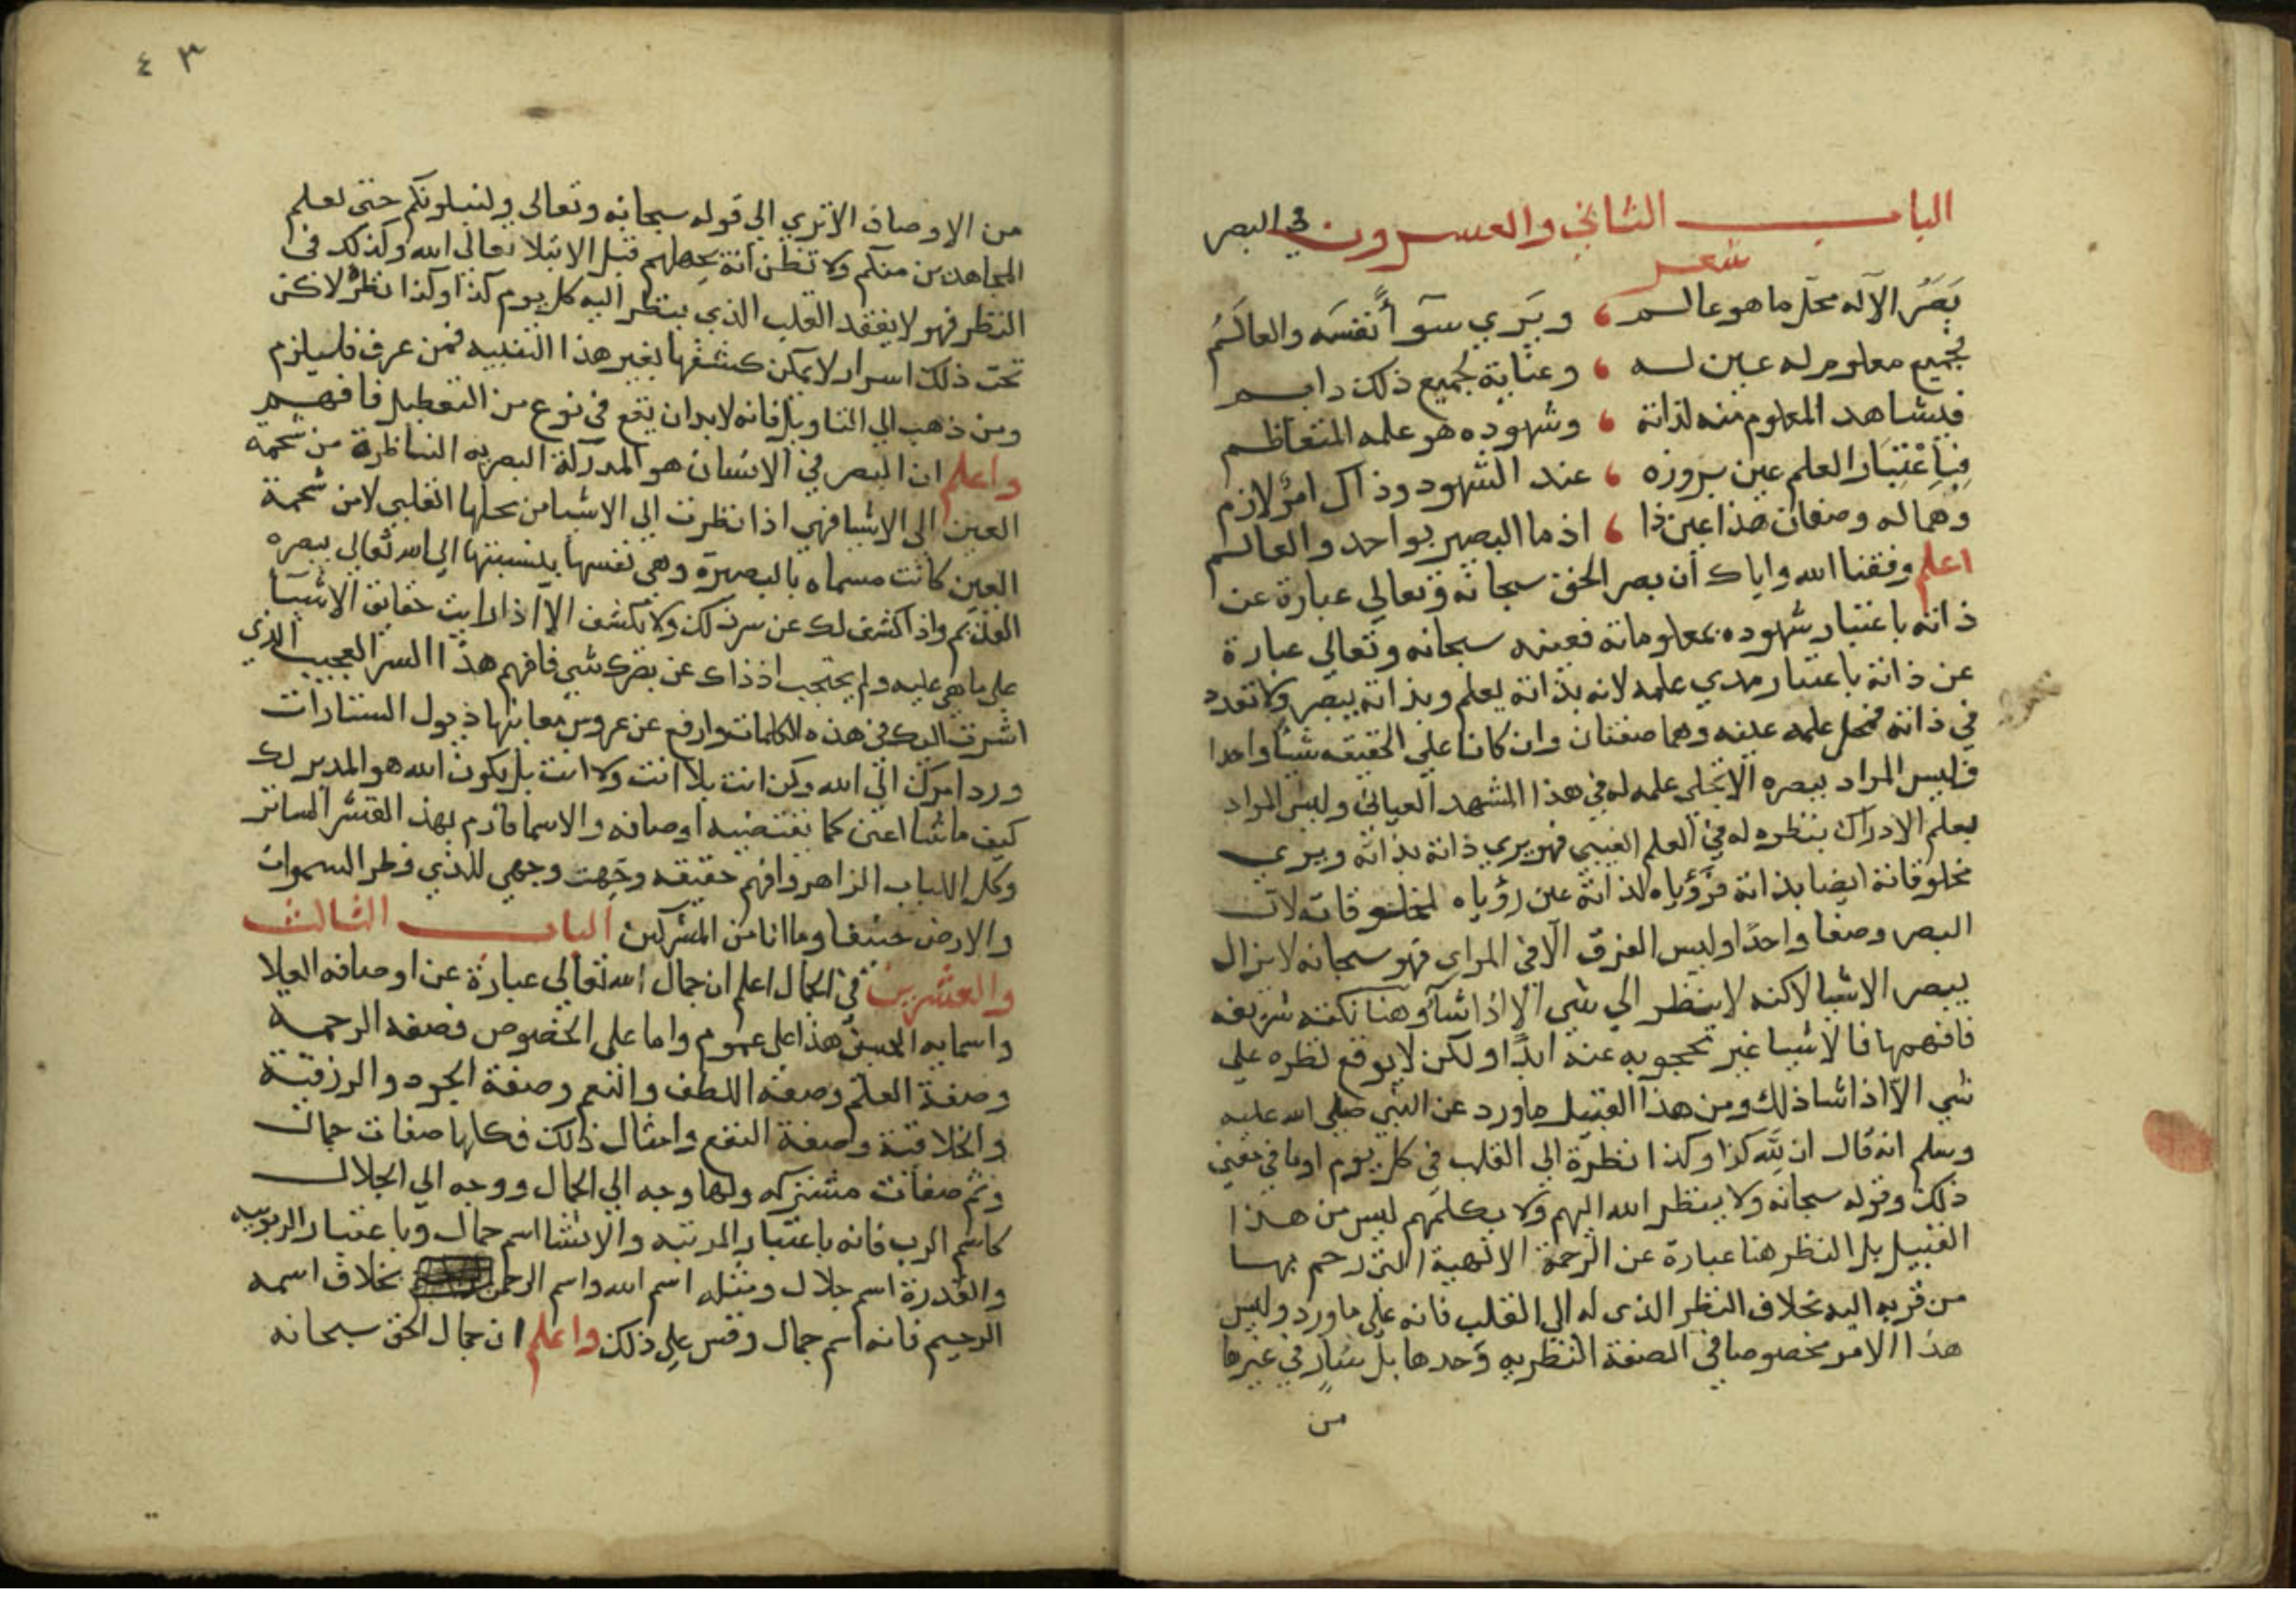 الباب الثاني والعشرون في البصر
شعر
بَصَرُ الآله محل ما هو عالم ، ويَرَي سوآً نفسَه والعالَمُ
فجميع معلوم له عين له ، وعنايةٌ لجميع ذلك دايم
فيشاهد المعلوم منه لذاته ، وشهوده هو علمه المتعاظم
فَبِاعْتِبَار العلم عين بروزه ، عند الشهود وذاك امرٌ لازم
وهما له وصفان هذا عين ذا ، اذ ما البصير بواحد والعالم
اعلم وفقنا الله واياك ان بصر الحق سبحانه وتعالي عبارة عن
ذاته باعتبار شهوده بمعلوماته فعينه سبحانه وتعالي عبارة
عن ذاته باعتبار مبدي علمه لانه بذاته يعلم وبذاته يبصر ولا تعدد
في ذاته فمحل علمه عينه وهما صفتان وان كانا علي الحقيقه شيئًا واحدا
فليس المراد ببصره الا تجلي علمه له في هذا المشهد العياني وليس المراد
بعلم الادراك بنظره له في العلم الغيبي فهو يري ذاته بذاته ويري
مخلوقاته ايضا بذاته فرؤياه لذاته عين رؤياه لمخلوقاته لان
البصر وصفا واحدًا وليس الفرق الا في المراي فهو سبحانه لا يزال
يبصر الاشيا لاكنه لا ينظر الي شي الا اذا شآ وهنا نكته شريفه
فافهمها فالاشيا غير محجوبه عنه ابدًا ولكن لا يوقع نظره علي
شي الا اذا شا ذلك ومن هذا القبيل ما ورد عن النبي صلي الله عليه
وسلم انه قال ان لله كذا وكذا نظرة الي القلب في كل يوم او ما في معني
ذلك وقوله سبحانه ولا ينظر الله اليهم ولا يكلمهم ليس من هذا
القبيل بل النظر هنا عبارة عن الرحمة الالهية التي رحم بها
من قربه اليه بخلاف النظر الذي له الي القلب فانه علي ما ورد وليس
هذا الامر مخصوصا في الصفة النظريه وحدها بل سارٍ في غيرها
من
٤٣
من الاوصاف الا تري الي قوله سبحانه وتعالي ولنبلونكم حتي نعلم
المجاهدين منكم ولا تظن انه يجهلهم قبل الابتلا تعالي الله وكذلك في
النظر فهو لا يفقد القلب الذي ينظر اليه كل يوم كذا وكذا نظرة لاكن
تحت ذلك اسرار لا يمكن كشفها بغير هذا التنبيه فمن عرف فليلزم
ومن ذهب الي التاويل فانه لابد ان يقع في نوع من التعطيل فافهم
واعلم ان البصر في الانسان هو المدركة البصريه الناظرة من شحمه
العين الي الاشيا فهي اذا نظرت الي الاشيا من محلها القلبي لا من شحمة
العين كانت مسماه بالبصيرة وهي نفسها بنسبتها الي الله تعالي ببصره
القديم واذا كشف لك عن سر ذلك ولا يكشف الا اذا رايت حقايق الاشيا
علي ما هي عليه ولم يحتجب اذ ذاك عن بصرك شي فافهم هذا السر العجيب الذي
اشرت اليك في هذه الكلمات وارفع عن عروس معانيها ذيول الستارات
ورد امرك الي الله وكن انت بلا انت ولا انت بل يكون الله هو المدبر لك
كيف ما شا اعني كما تقتضيه اوصافه والاسما فارم بهذ القشر الساتر
وكل اللباب الزاهر وافهم حقيقه وجهت وجهي للذي فطر السموات
والارض حنيفا وما انا من المشركين الباب الثالث
والعشرين في الجمال اعلم ان جمال الله تعالي عبارة عن اوصافه العلا
واسمايه الحسني هذا علي عموم واما علي الخصوص فصفه الرحمه
وصفة العلم وصفه اللطف والنعم وصفة الجود والرزقية
والخلاقية وصفة النفع وامثال ذلك فكلها صفات جمال
وثم صفات مشتركه ولها وجه الي الجمال ووجه الي الجلال
كاسم الرب فانه باعتبار المرتبه والانشا اسم جمال وباعتبار الربوبيه
والقدرة اسم جلال ومثله اسم الله واسم الرحمن بخلاف اسمه
الرحيم فانه اسم جمال وقس علي ذلك واعلم ان جمال الحق سبحانه